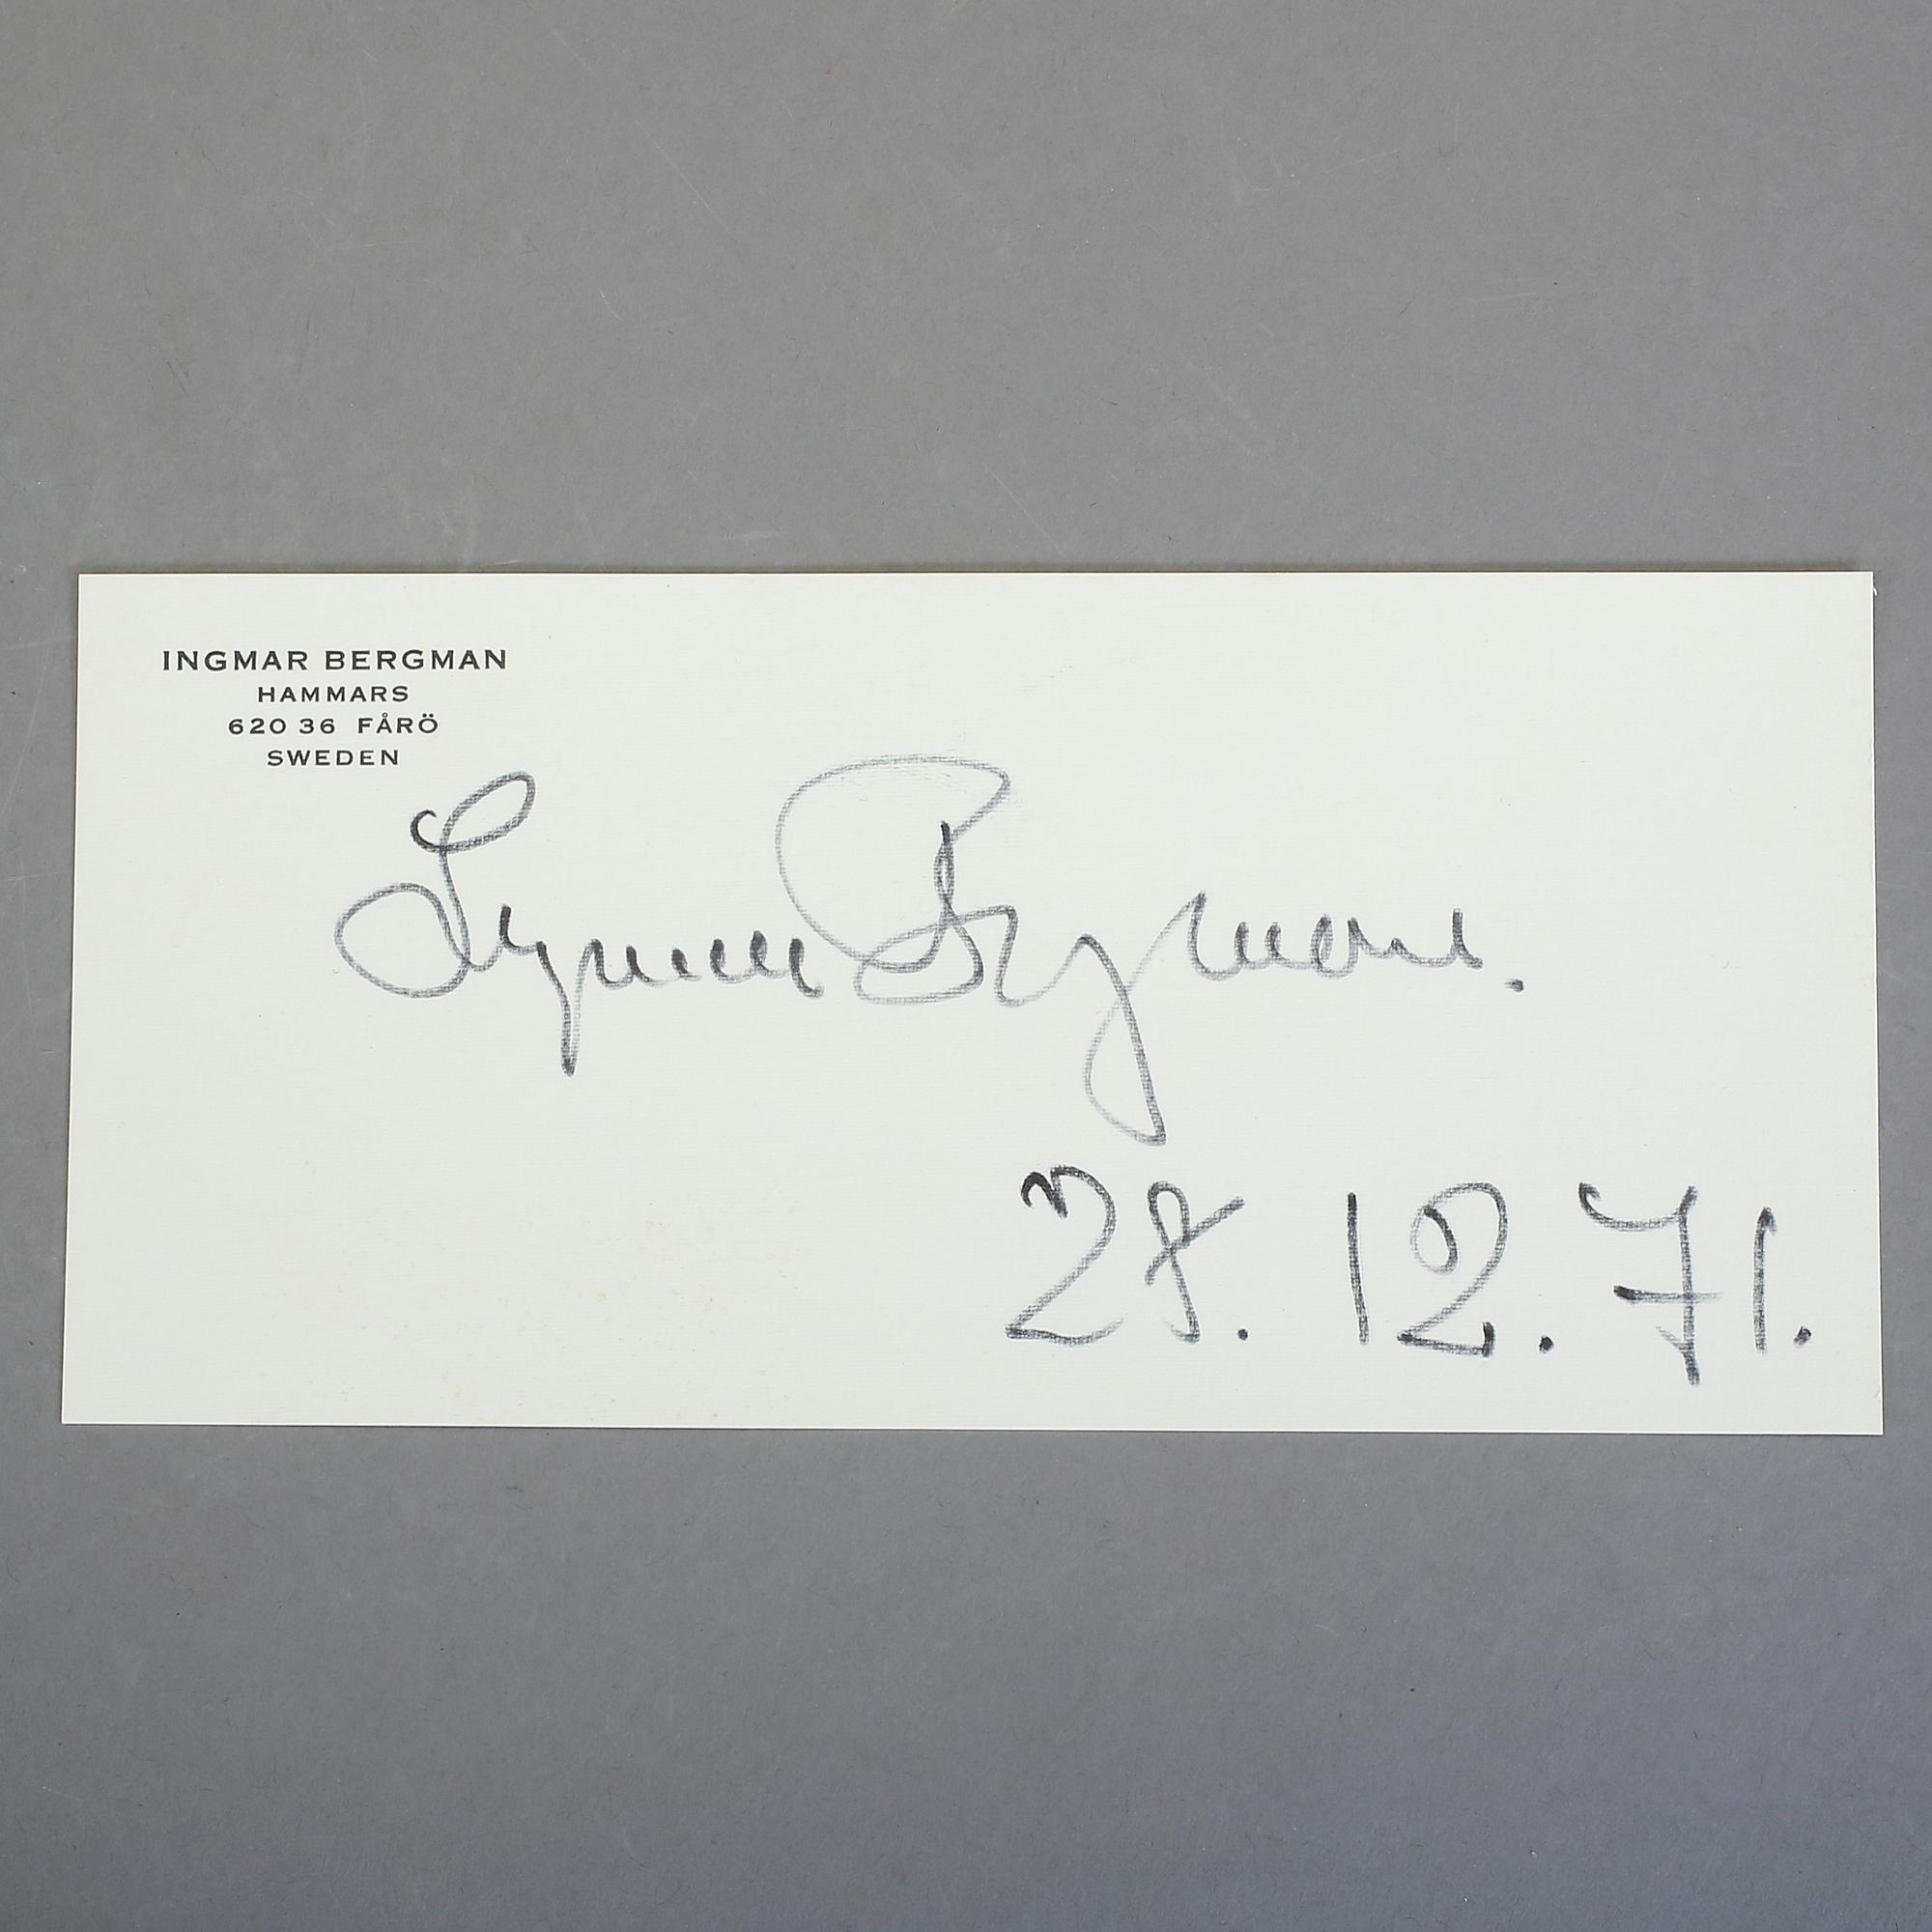 INGMAR BERGMAN
HAMMARS
620 36 FÅRÖ
SWEDEN
Ingmar Bergman.
28. 12. 71.